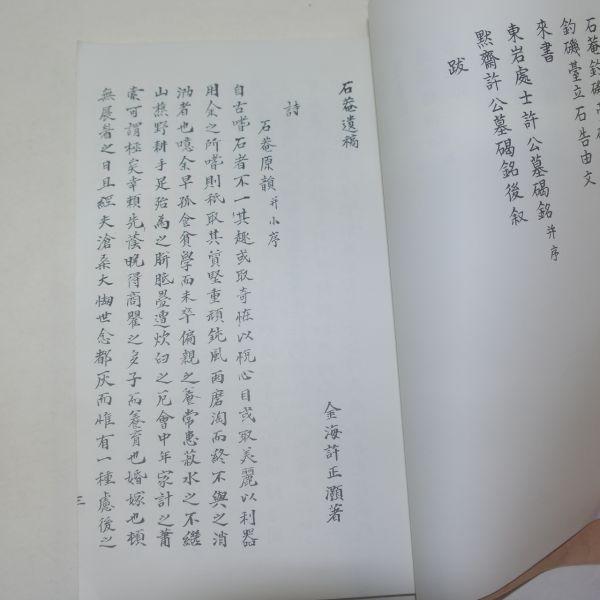 石菴釣磯
釣磯臺立石告由文
來書
東岩處士許公墓碣銘并序
默齋許公墓碣銘後叙
跋
石菴遺稿
金海許正灝著
詩
石菴原韻并小序
自古嗜石者不一其趣或取奇怪以悅心目或取美麗以利器
用余之所嗜則秖取其質堅重頑鈍風雨磨淘而終不與之消
泐者也噫余早孤食貧學而未卒偏親之養常患菽水之不繼
山樵野耕手足殆為之胼胝疊遭炊臼之厄會中年家計之蕭
索可謂極矣幸賴先蔭晩得商瞿之多子而養育也婚嫁也頓
無展眉之日且經夫滄桑大恸世念都灰而惟有一種慮後之
三